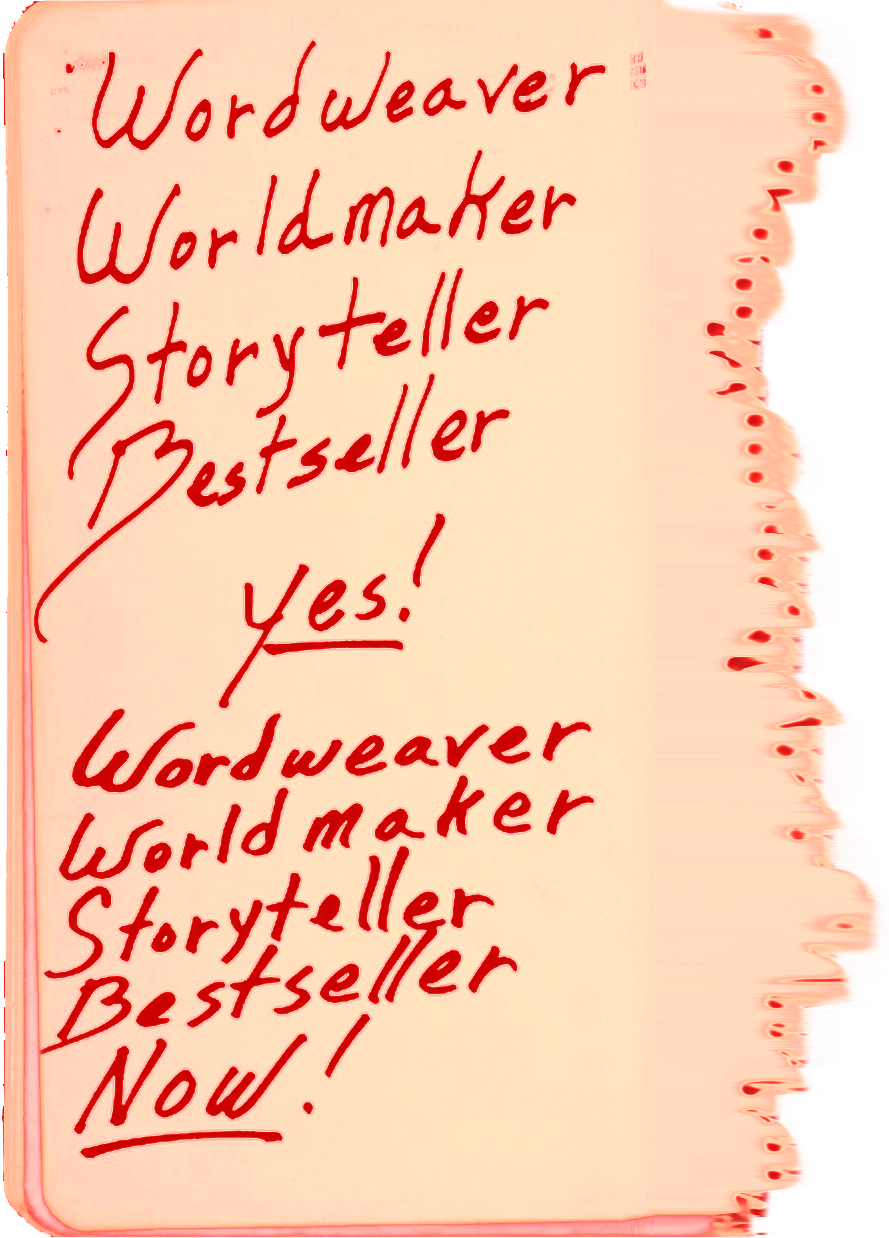 Wordweaver
Worldmaker
Storyteller
Bestseller
yes!
Wordweaver
Worldmaker
Storyteller
Bestseller
Now!